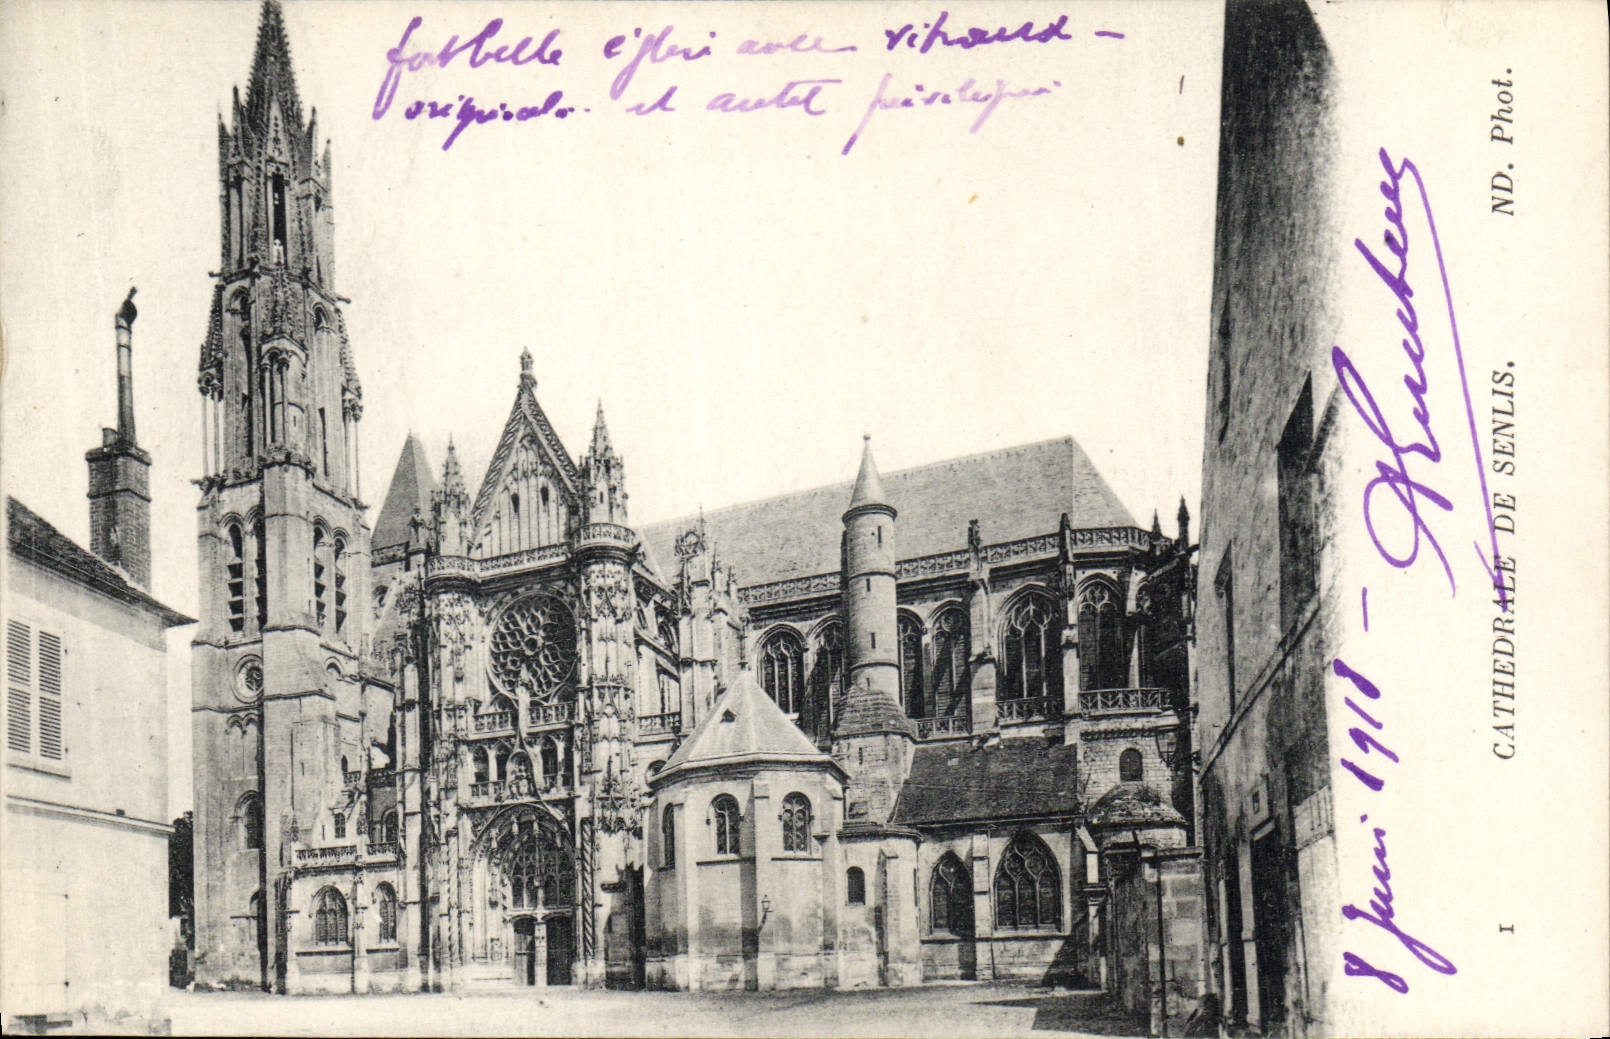 fort belle église avec vitraux -
originals. et autel privilégié
8 Juin 1918 -
1 CATHEDRALE DE SENLIS. ND. Phot.